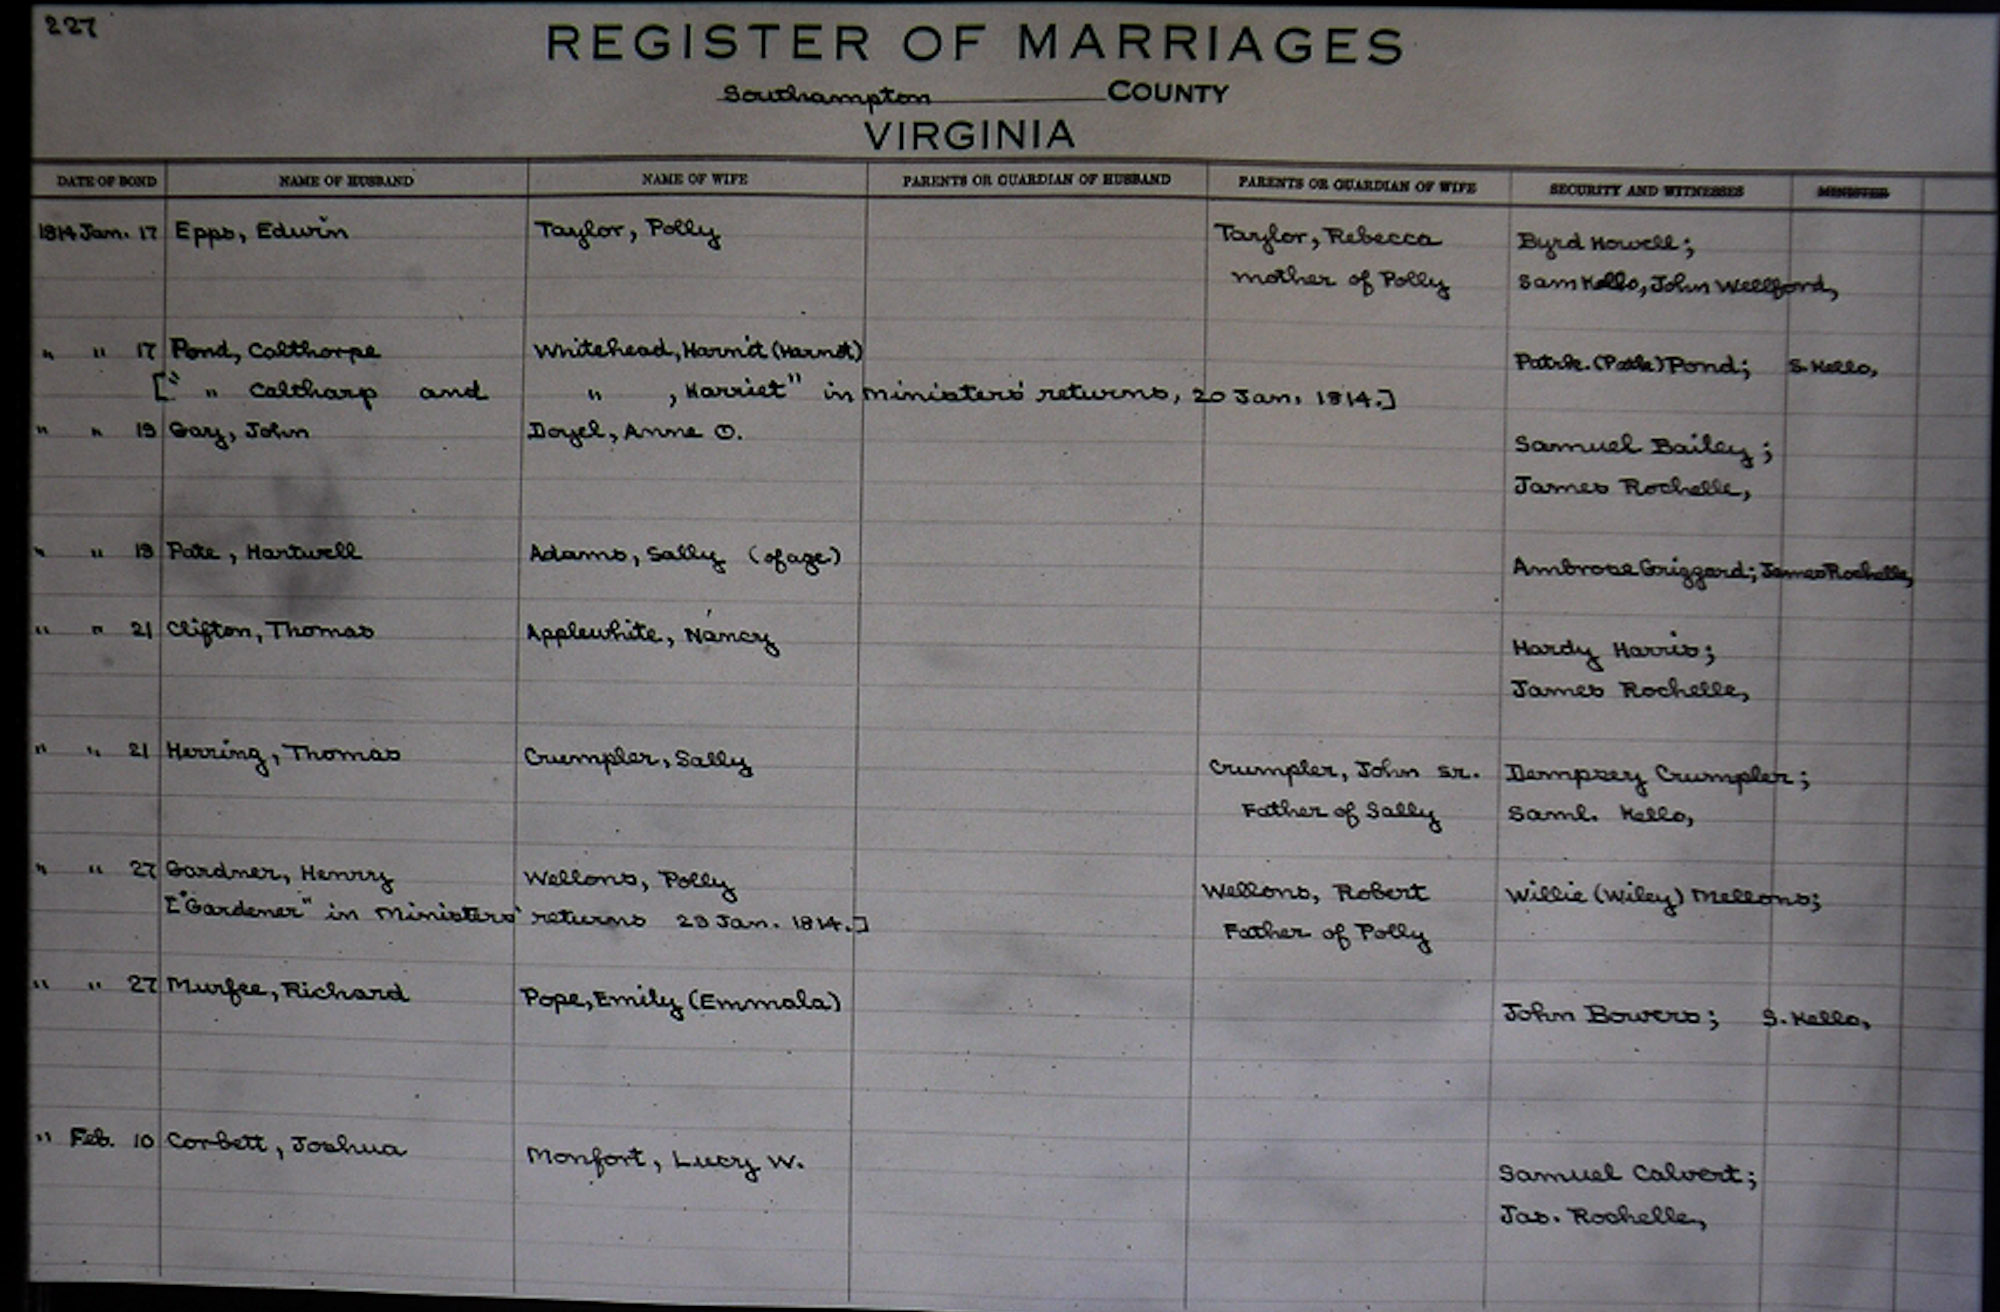 227
REGISTER OF MARRIAGES
Southampton COUNTY
VIRGINIA
DATE OF BOND NAME OF HUSBAND NAME OF WIFE PARENTS OR GUARDIAN OF HUSBAND PARENTS OR GUARDIAN OF WIFE SECURITY AND WITNESSES MINISTER
1814 Jan. 17 Epps, Edwin Taylor, Polly Taylor, Rebecca Byrd Howell;
mother of Polly Sam Kello, John Wellford,
" " 17 Pond, Calthorpe Whitehead, Harn't Patrk. Pond; S. Kello,
[" " Caltharp and " , Harriet" in Ministers' returns, 20 Jan. 1814.]
" " 19 Gary, John Doyel, Anne O. Samuel Bailey;
James Rochelle,
" " 19 Pate, Hartwell Adams, Sally (of age) Ambrose Griggard; James Rochelle,
" " 21 Clifton, Thomas Applewhite, Nancy Hardy Harris;
James Rochelle,
" " 21 Herring, Thomas Crumpler, Sally Crumpler, John Sr. Dempsey Crumpler;
Father of Sally Saml. Kello,
" " 27 Gardner, Henry Wellons, Polly Wellons, Robert Willie (Wiley) Mellons;
["Gardener" in Ministers' returns 23 Jan. 1814.] Father of Polly
" " 27 Murfee, Richard Pope, Emily (Emmala) John Bowers; S. Kello,
" Feb. 10 Corbett, Joshua Monfort, Lucy W. Samuel Calvert;
Jas. Rochelle,